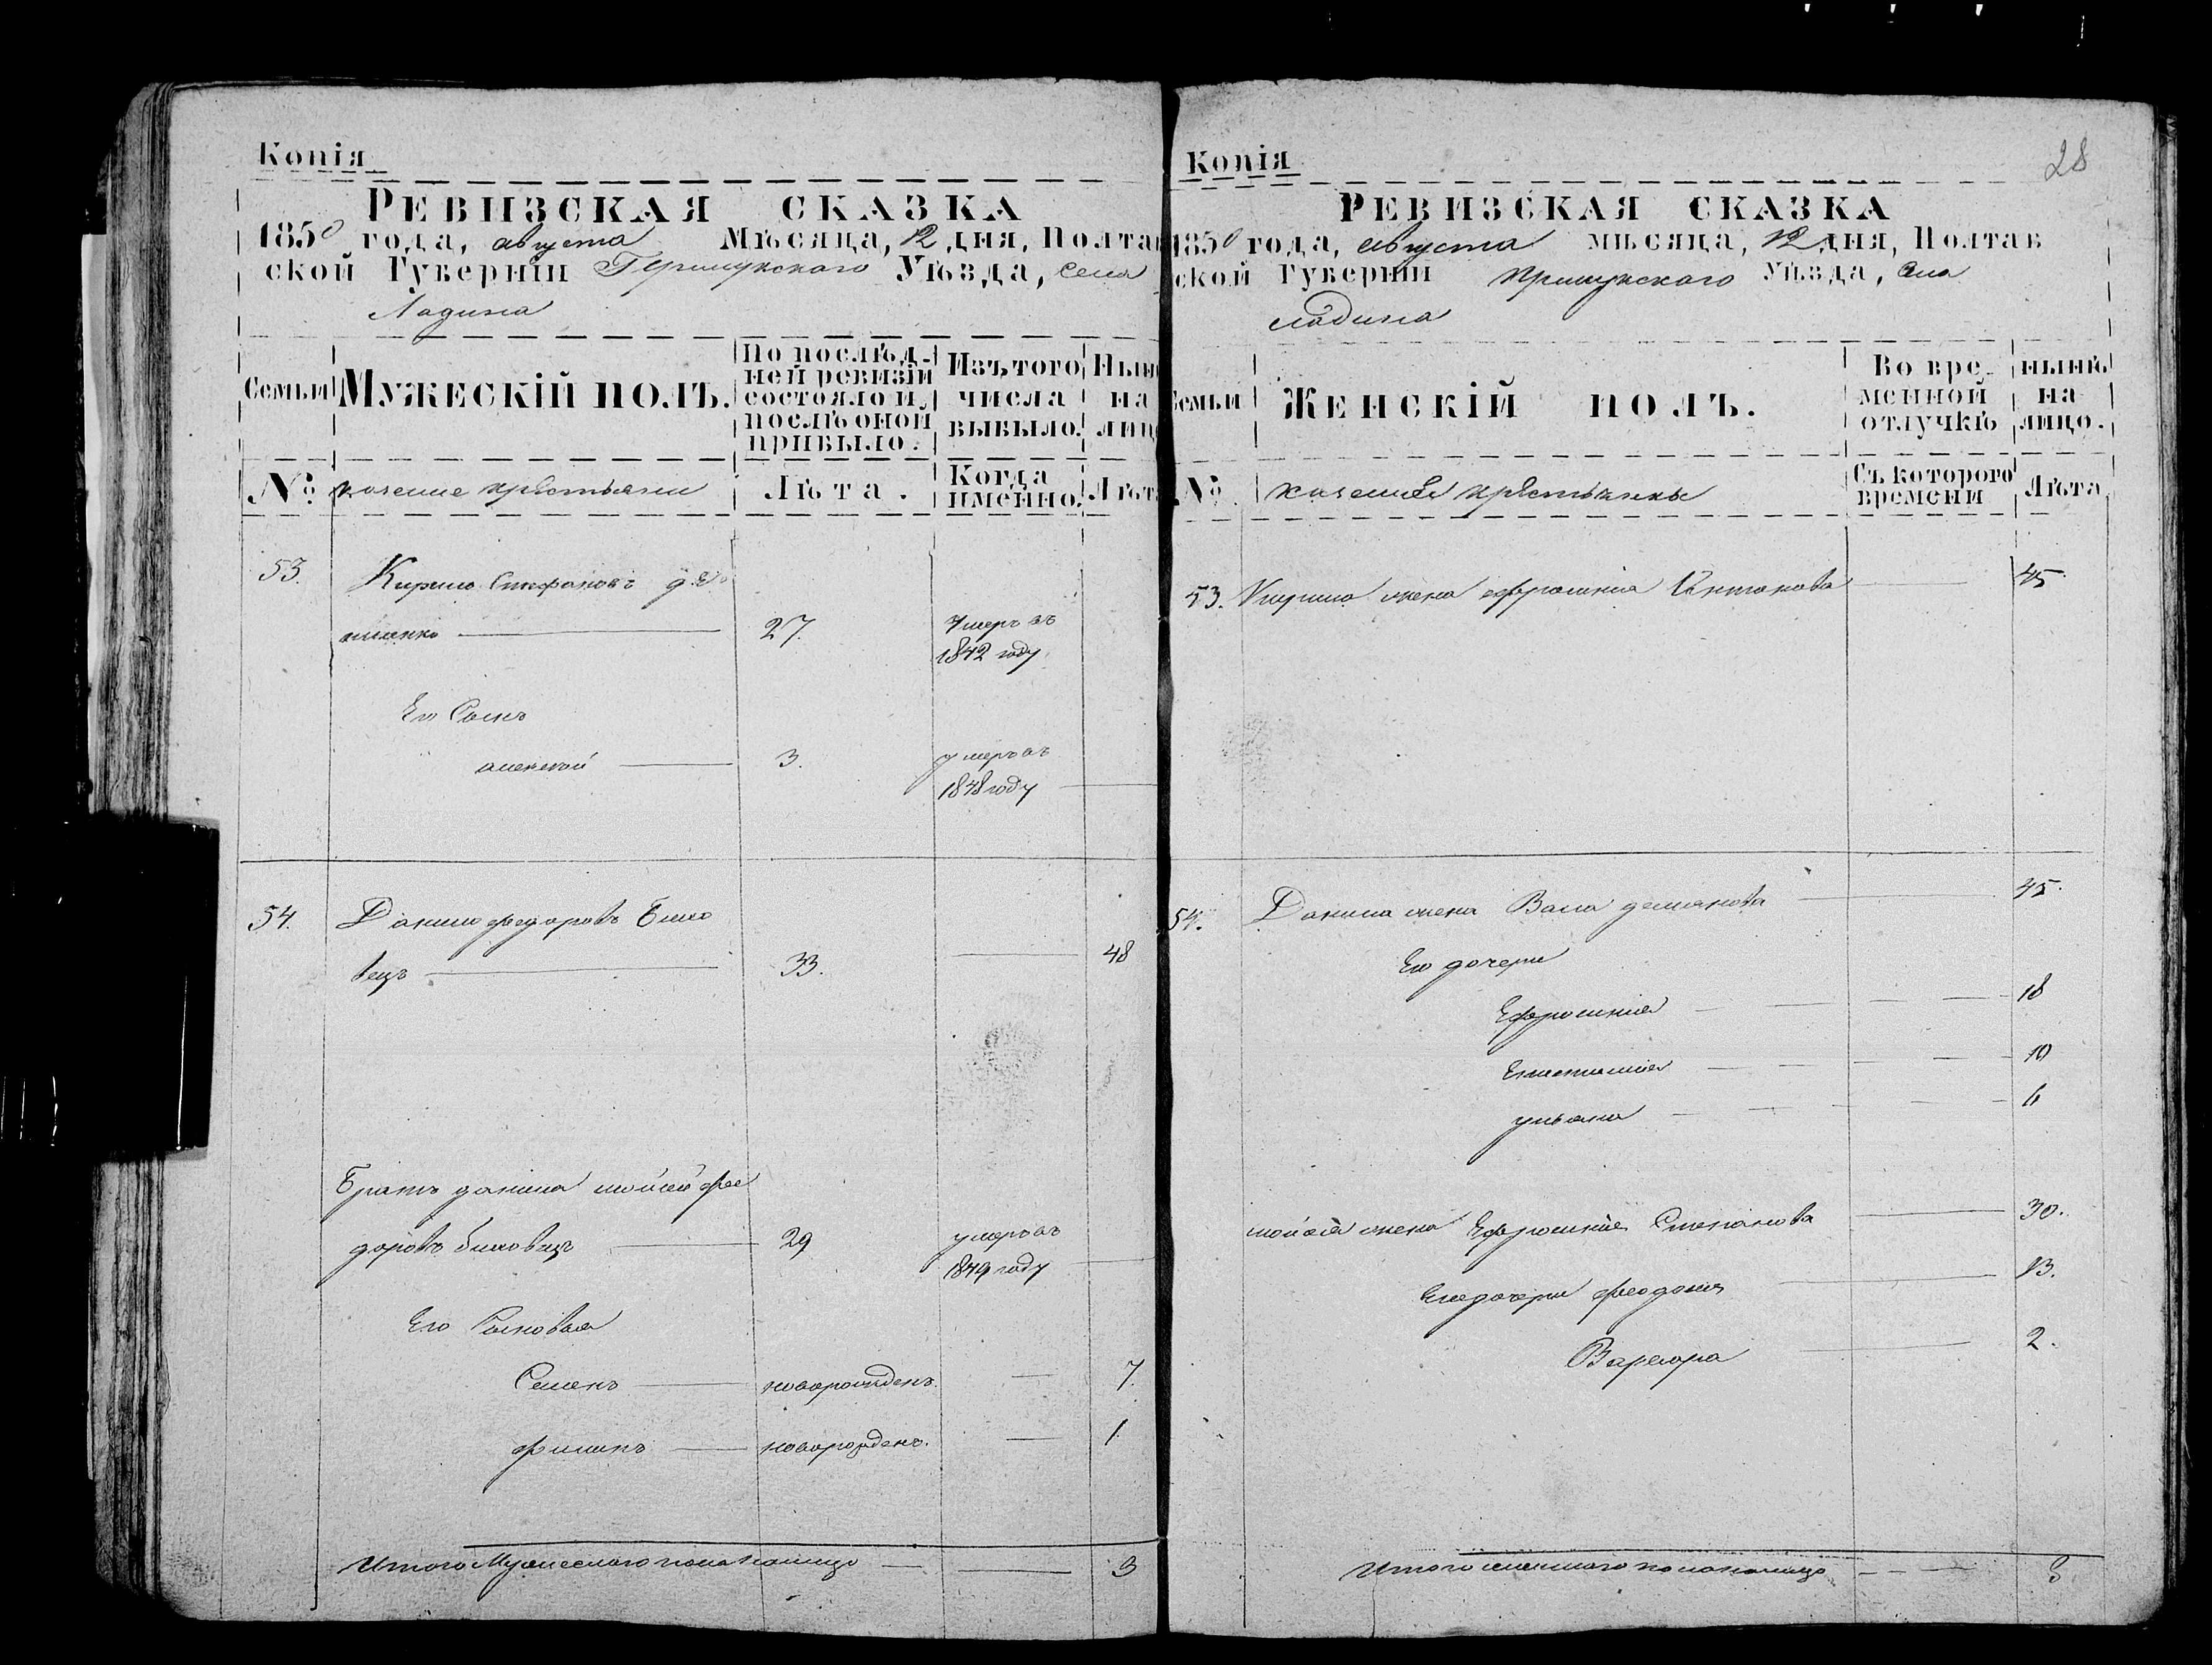 Копія
РЕВИЗСКАЯ СКАЗКА
1850 года, августа Мѣсяца, 12 дня, Полтав
ской Губерніи Прилукскаго Уѣзда, села
Ладина
Семьи
МУЖЕСКІЙ ПОЛЪ.
По послѣд-
ней ревизіи
состояло и
послѣ оной
прибыло.
Изъ того
числа
выбыло.
Нынѣ
на
лицо
№
казенные крестьяни
Лѣта.
Когда
именно.
Лѣта
53.
Кирило Стефановъ
27.
умеръ въ
1842 году
Его Сынъ
алексѣй
3.
умеръ въ
1848 году
54.
Данило федоровъ Било
вецъ
33.
48
Братъ данила мойсей фео
доровъ биловецъ
29
умеръ въ
1849 году
Его Сыновья
Семенъ
новорожденъ.
7.
филипъ
новорожденъ.
1
Итого Мужескаго пола налицо
3
28
Копія
РЕВИЗСКАЯ СКАЗКА
1850 года, августа мѣсяца, 12 дня, Полтав
ской Губерніи Прилукскаго Уѣзда, села
ладина
Семьи
ЖЕНСКІЙ ПОЛЪ.
Во вре-
менной
отлучкѣ
нынѣ
на-
лицо.
№
казенные крестьянки
Съ котораго
времени
Лѣта
53. Кирила жена ефросинія Антонова
45.
54. Данила жена Васа демянова
45.
Его дочери
Ефросинія
18
10
ульяна
6
мойсея жена Ефросинія Степанова
30.
Его дочери феодосия
13.
Варвара
2.
Итого женскаго пола налицо